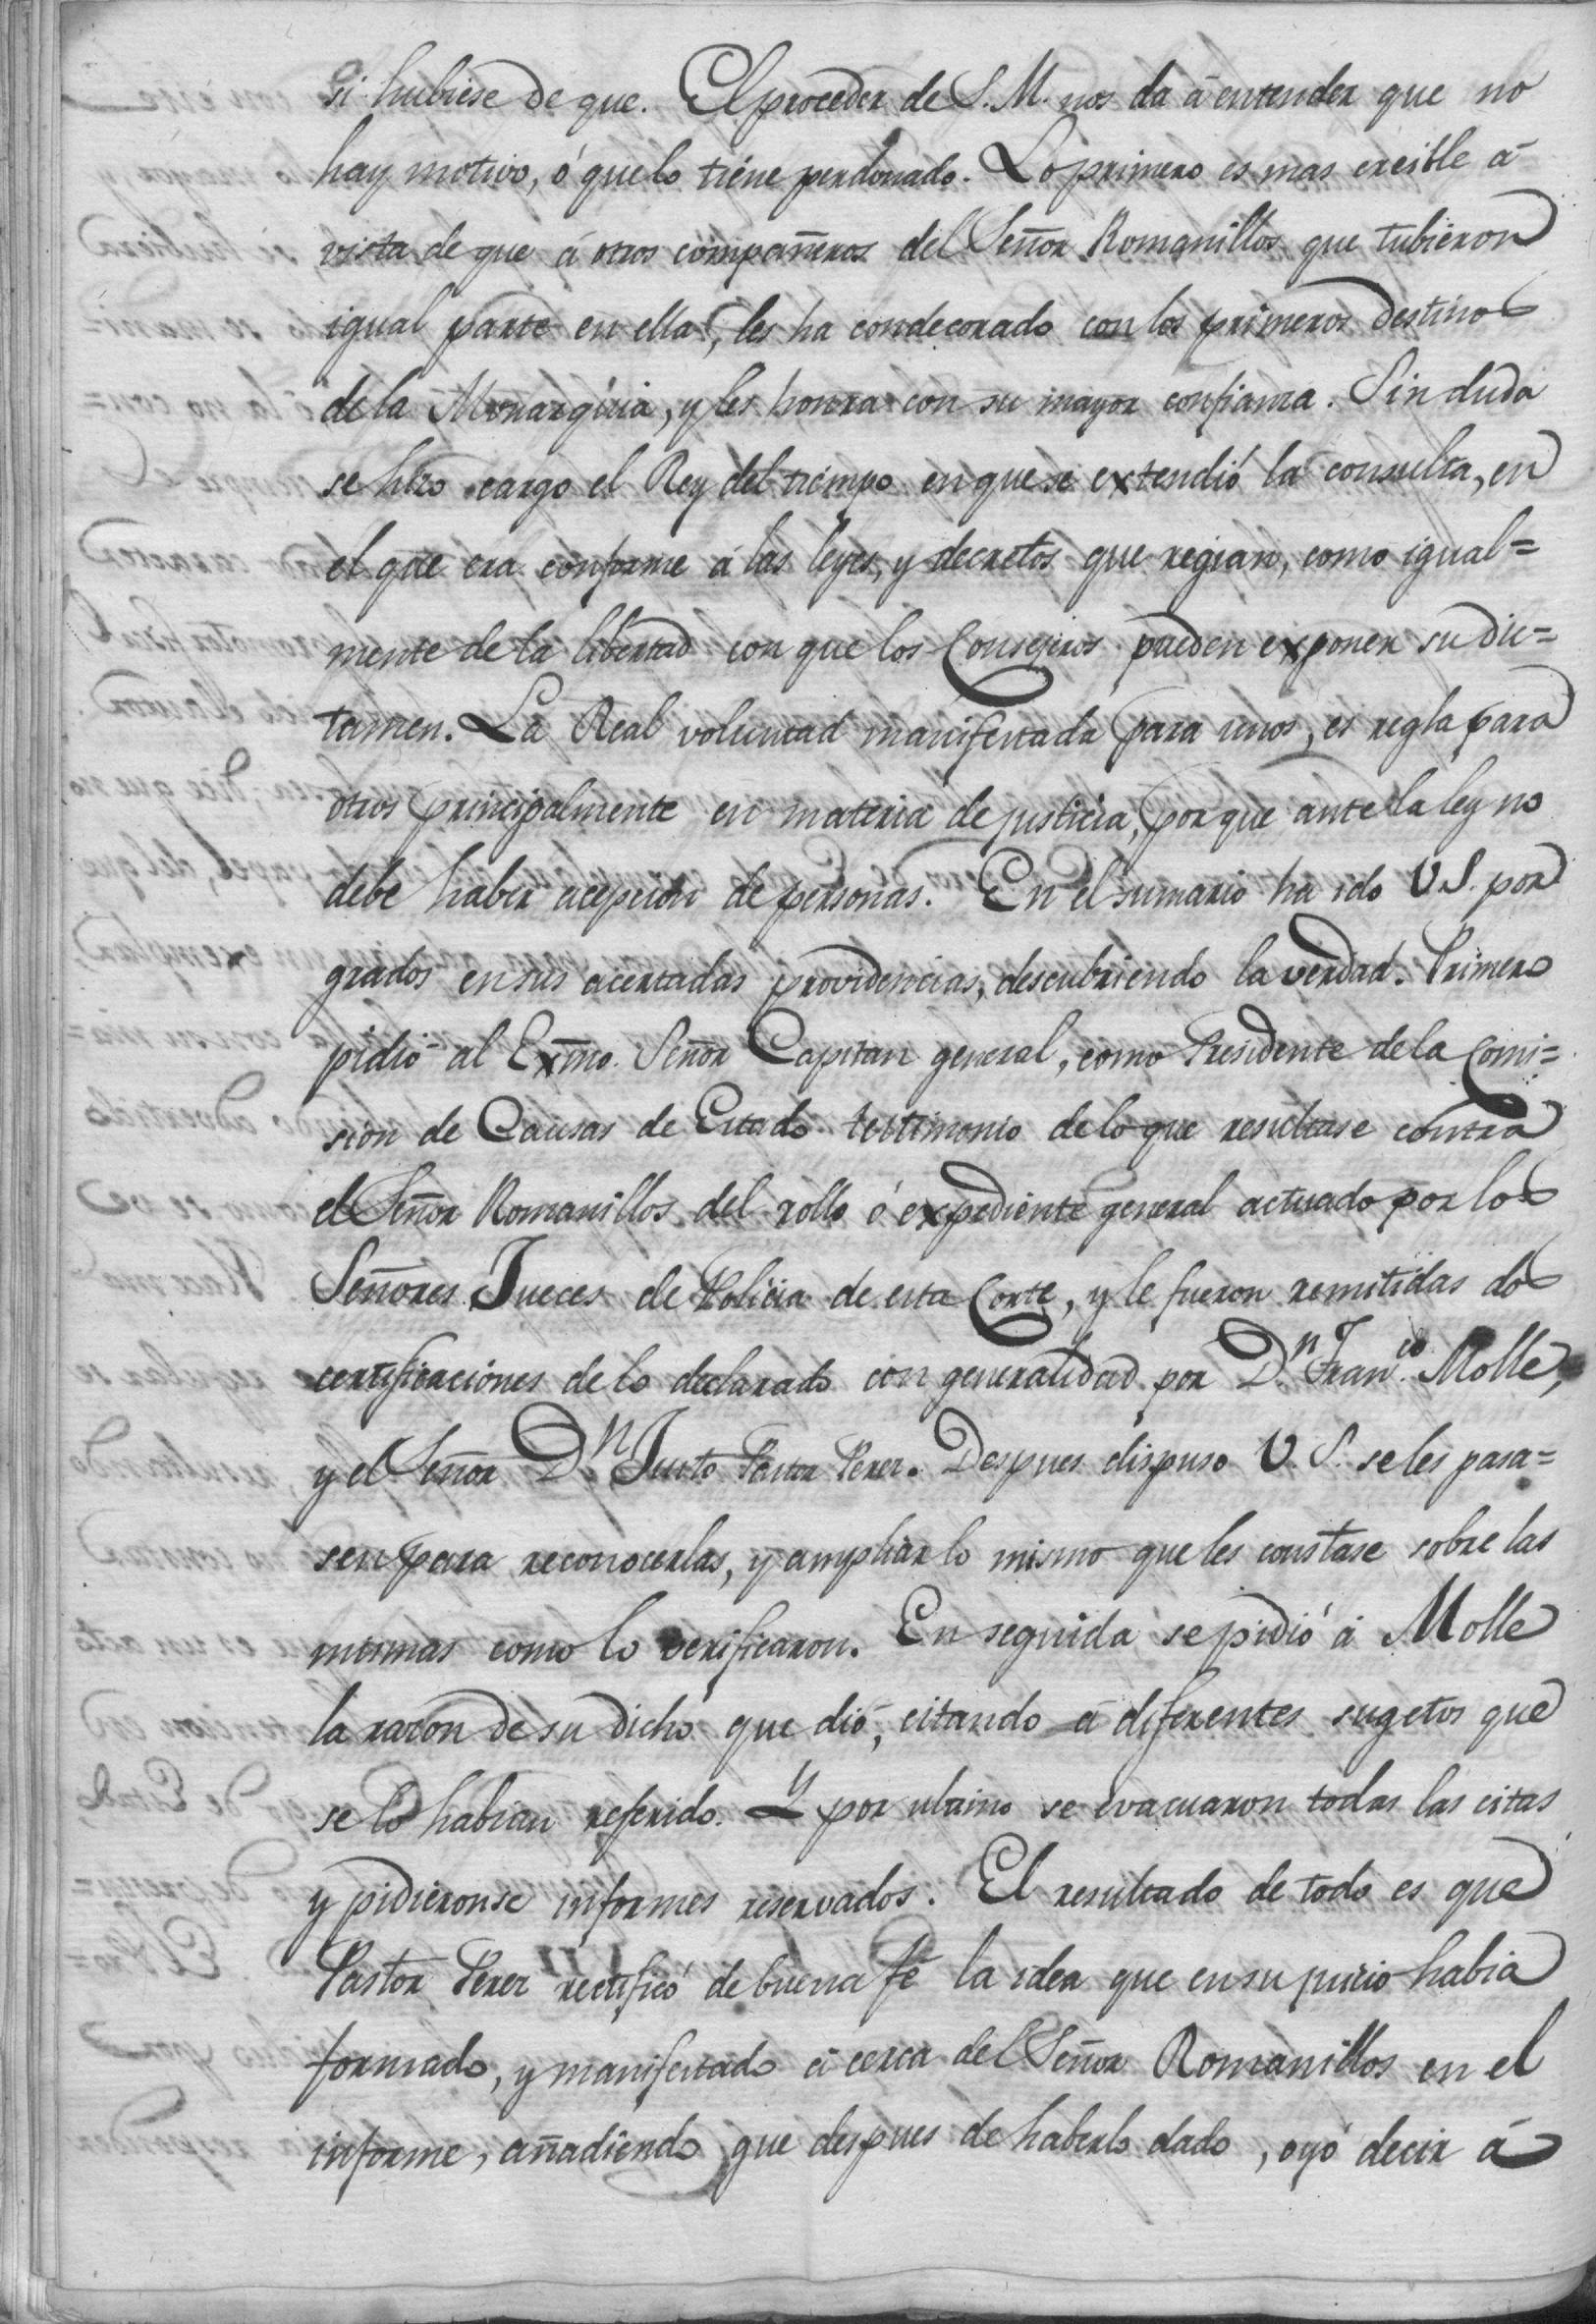 si hubiese de que. El proceder de S. M. nos da á entender que no
hay motivo, ó que lo tiene perdonado. Lo primero es mas creible á
vista de que á otros compañeros del Señor Romanillos que tubieron
igual parte en ella, les ha condecorado con los primeros destinos
de la Monarquia, y les honra con su mayor confianza. Sin duda
se hizo cargo el Rey del tiempo en que se extendió la consulta, en
el que era conforme á las leyes, y decretos que regian, como igual=
mente de la libertad con que los Consejeros pueden exponer su dic=
tamen. La Real voluntad manifestada para unos, es regla para
otros principalmente en materia de justicia, porque ante la ley no
debe haber acepcion de personas. En el sumario ha ido V.S. por
grados en sus acertadas providencias, descubriendo la verdad. Primero
pidió al Exmo. Señor Capitan general, como Presidente de la Comi=
sion de Causas de Estado testimonio de lo que resultase contra
el Señor Romanillos del rollo ó expediente general actuado por los
Señores Jueces de Policia de esta Corte, y le fueron remitidas dos
certificaciones de lo declarado con generalidad por Dn. Franco. Molle,
y el Señor Dn. Justo Pastor Perez. Despues dispuso V.S. se les pasa=
sen para reconocerlas, y ampliar lo mismo que les constase sobre las
mismas como lo verificaron. En seguida se pidió á Molle
la razon de su dicho que dió, citando á diferentes sugetos que
se lo habian referido. Y por ultimo se evacuaron todas las citas
y pidieronse informes reservados. El resultado de todo es que
Pastor Perez rectificó de buena fé la idea que en su juicio habia
formado, y manifestado á cerca del Señor Romanillos en el
informe, añadiendo que despues de haberlo dado, oyó decir á